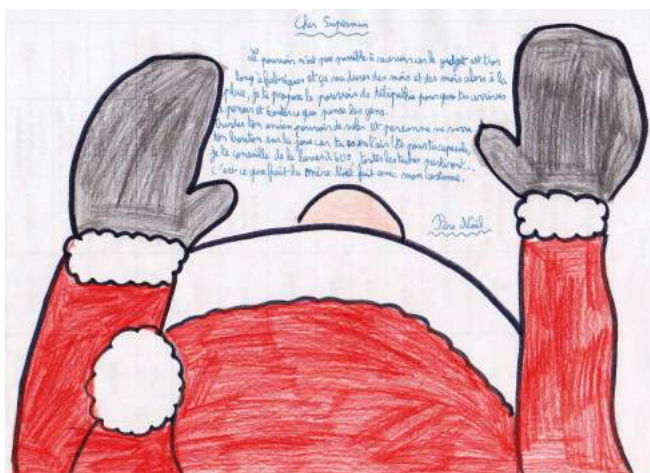 Cher Superman
Le pouvoir n'est pas possible à recevoir car le gadget est trop
long à fabriquer et ça va durer des mois et des mois alors à la
place, je te propose le pouvoir de télépathie pour que tu arrives
à penser et écouter ce que pense les gens.
Gardes ton ancien pouvoir de voler et personne ne verra
ton bouton sur la face car tu es en l'air. Et pour ta capsule,
je te conseille de la laver à 60°, toutes les taches partiront...
C'est ce que fait la mère Noël fait avec mon costume.
Père Noël